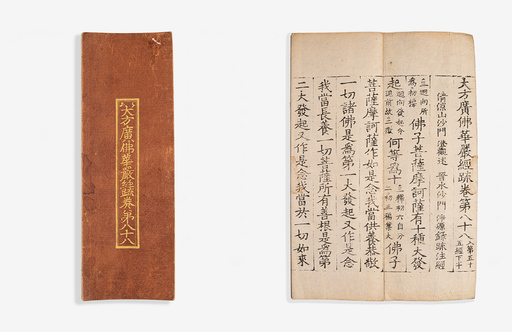 大方廣佛華嚴經疏卷第八十八
大方廣佛華嚴經疏卷第八十八
清涼山沙門 澄觀述 晉水沙門 淨源錄疏注經
佛子菩薩摩訶薩有十種大發
起 何等為十 佛子
菩薩摩訶薩作如是念我當供養恭敬
一切諸佛是為第一大發起又作是念
我當長養一切菩薩所有善根是為第
二大發起又作是念我當於一切如來